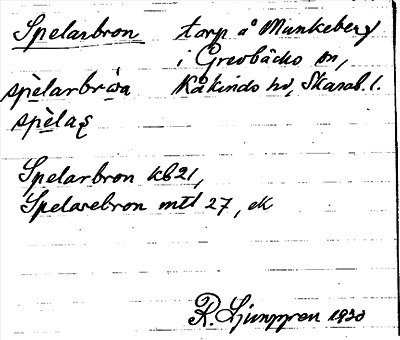 Spelarbron torp å Munkeberg
i Grevbäcks sn,
spèlarbròa Kåkinds hd, Skarab. l.
spèlaʂ
Spelarbron kb 21,
Spelarebron mtl 27, ek
R. Ljunggren 1930